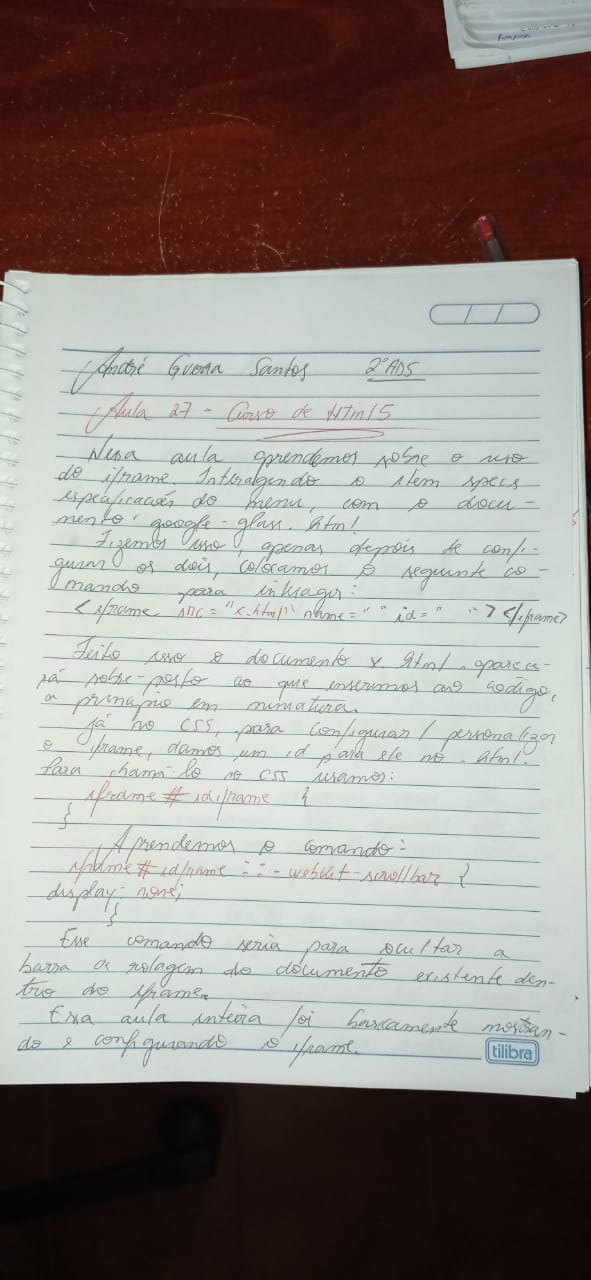 André Guerra Santos 2º ADS
Aula 27 - Curso de Html5
Nesa aula aprendemos sobre o uso
do iframe. Interagindo o item specs
especificações do menu, com o docu-
mento google-glass.html
Fizemos isso, apenas depois de confi-
gurar os dois, colocamos o seguinte co-
mando para interagir:
<iframe src="x.html" name=" " id=" "></iframe>
Feito isso o documento x html. aparece-
rá sobre-posto ao que inserimos ao código,
a princípio em miniatura.
já no CSS, para configurar/personalizar
o iframe, damos um id para ele no .html.
Para chamá-lo no CSS usamos:
iframe # idiframe {
}
Aprendemos o comando:
iframe # idframe ::-webkit-scrollbar {
display: none;
}
Esse comando seria para ocultar a
barra de rolagem do documento existente den-
tro do iframe.
Essa aula inteira foi basicamente mostran-
do e configurando o iframe.
tilibra